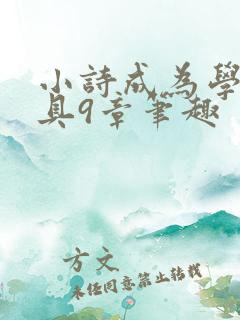 小詩成為學
具9章筆趣
方文
未經同意禁止轉載